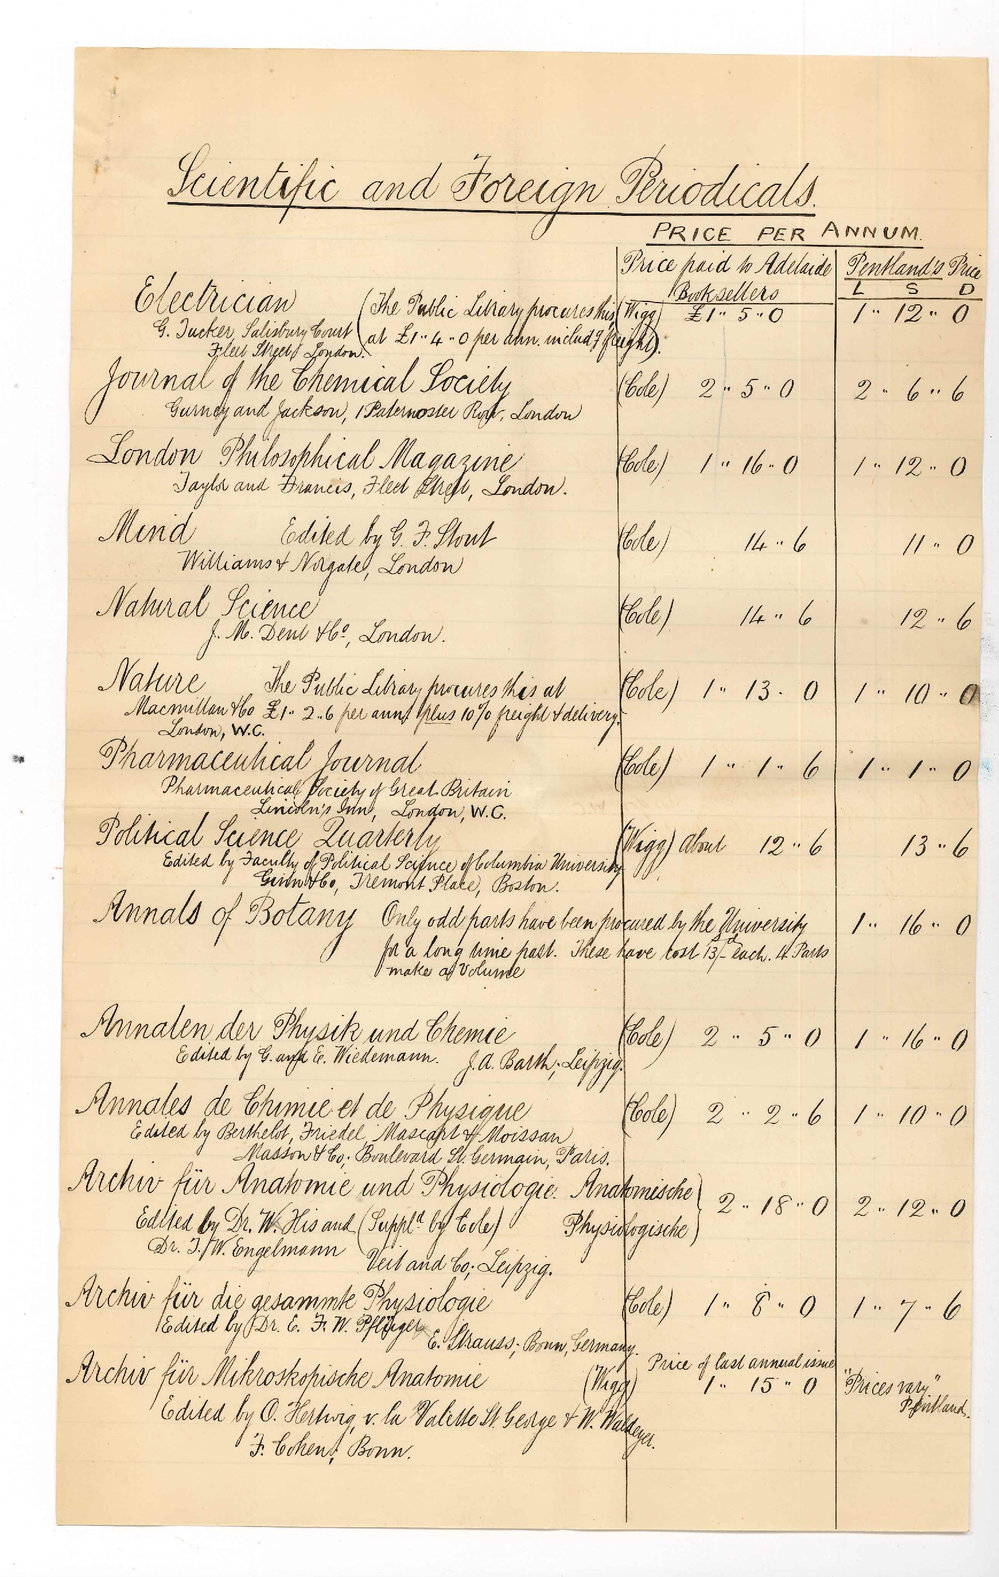 Scientific and Foreign Periodicals.
PRICE PER ANNUM.
Price paid to Adelaide Booksellers
Pentland's Price
L S D
Electrician (The Public Library procures this (Wigg) £1" 5" 0 1" 12" 0
G. Tucker, Salisbury Court at £1" 4" 0 per ann. includg freight).
Fleet Street, London.
Journal of the Chemical Society (Cole) 2" 5" 0 2" 6" 6
Gurney and Jackson, 1 Paternoster Row, London
London Philosophical Magazine (Cole) 1" 16" 0 1" 12" 0
Taylor and Francis, Fleet Street, London.
Mind Edited by G. F. Stout (Cole) 14" 6 11" 0
Williams & Norgate, London
Natural Science (Cole) 14" 6 12" 6
J. M. Dent & Co, London.
Nature The Public Library procures this at (Cole) 1" 13" 0 1" 10" 0
Macmillan & Co £1" 2" 6 per ann, plus 10% freight & delivery.
London, W.C.
Pharmaceutical Journal (Cole) 1" 1" 6 1" 1" 0
Pharmaceutical Society of Great Britain
Lincoln's Inn, London, W.C.
Political Science Quarterly (Wigg) about 12" 6 13" 6
Edited by Faculty of Political Science of Columbia University
Ginn & Co, Tremont Place, Boston.
Annals of Botany Only odd parts have been procured by the University 1" 16" 0
for a long time past. These have cost 13/- each. 4 Parts
make a Volume
Annalen der Physik und Chemie (Cole) 2" 5" 0 1" 16" 0
Edited by G. and E. Wiedemann. J. A. Barth; Leipzig.
Annales de Chimie et de Physique (Cole) 2" 2" 6 1" 10" 0
Edited by Berthelot, Friedel, Mascart & Moissan
Masson & Co; Boulevard St. Germain, Paris.
Archiv für Anatomie und Physiologie: Anatomische } 2" 18" 0 2" 12" 0
Edited by Dr. W. His and (Suppld by Cole) Physiologische
Dr. T. W. Engelmann Veit and Co; Leipzig.
Archiv für die gesammte Physiologie (Cole) 1" 8" 0 1" 7" 6
Edited by Dr. E. F. W. Pflüger E. Strauss; Bonn, Germany.
Price of last annual issue
Archiv für Mikroskopische Anatomie (Wigg) 1" 15" 0 "Prices vary"
Pentland.
Edited by O. Hertwig, v. la Valette St George & W. Waldeyer.
F. Cohen; Bonn.